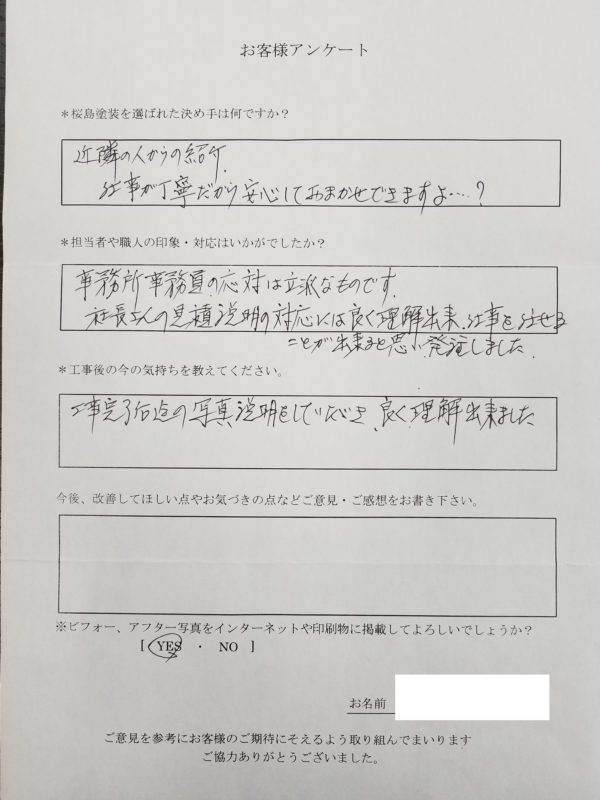 お客様アンケート
＊桜島塗装を選ばれた決め手は何ですか？
近隣の人からの紹介.
仕事が丁寧だから安心しておまかせできますよ….？
＊担当者や職人の印象・対応はいかがでしたか？
事務所事務員の応対は立派なものです.
社長さんの見積説明の対応には良く理解出来、仕事を任せる
ことが出来ると思い発注しました.
＊工事後の今の気持ちを教えてください。
工事完了後の写真説明をしていただき、良く理解出来ました
今後、改善してほしい点やお気づきの点などご意見・ご感想をお書き下さい。
※ビフォー、アフター写真をインターネットや印刷物に掲載してよろしいでしょうか？
[ YES ・ NO ]
お名前
ご意見を参考にお客様のご期待にそえるよう取り組んでまいります
ご協力ありがとうございました。